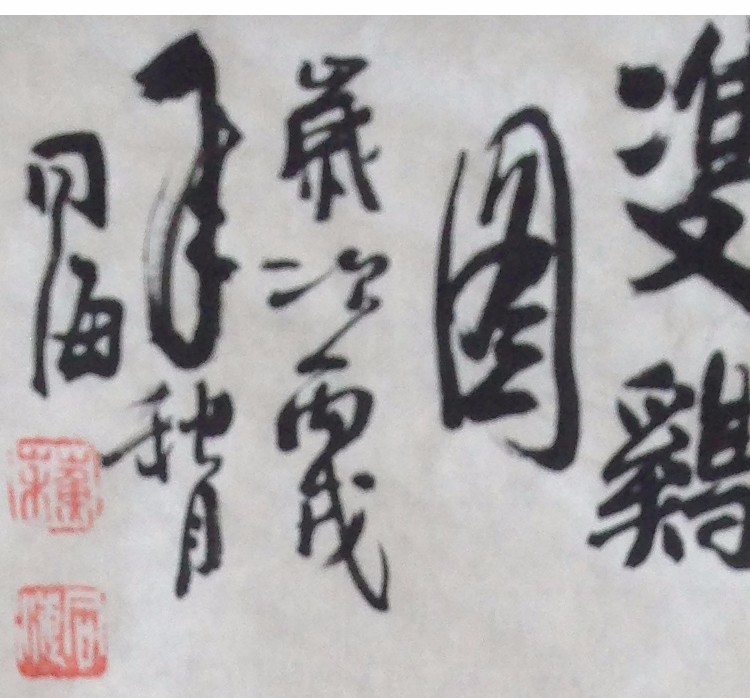 雙鷄
圖
歲次丙戌
年秋月
海